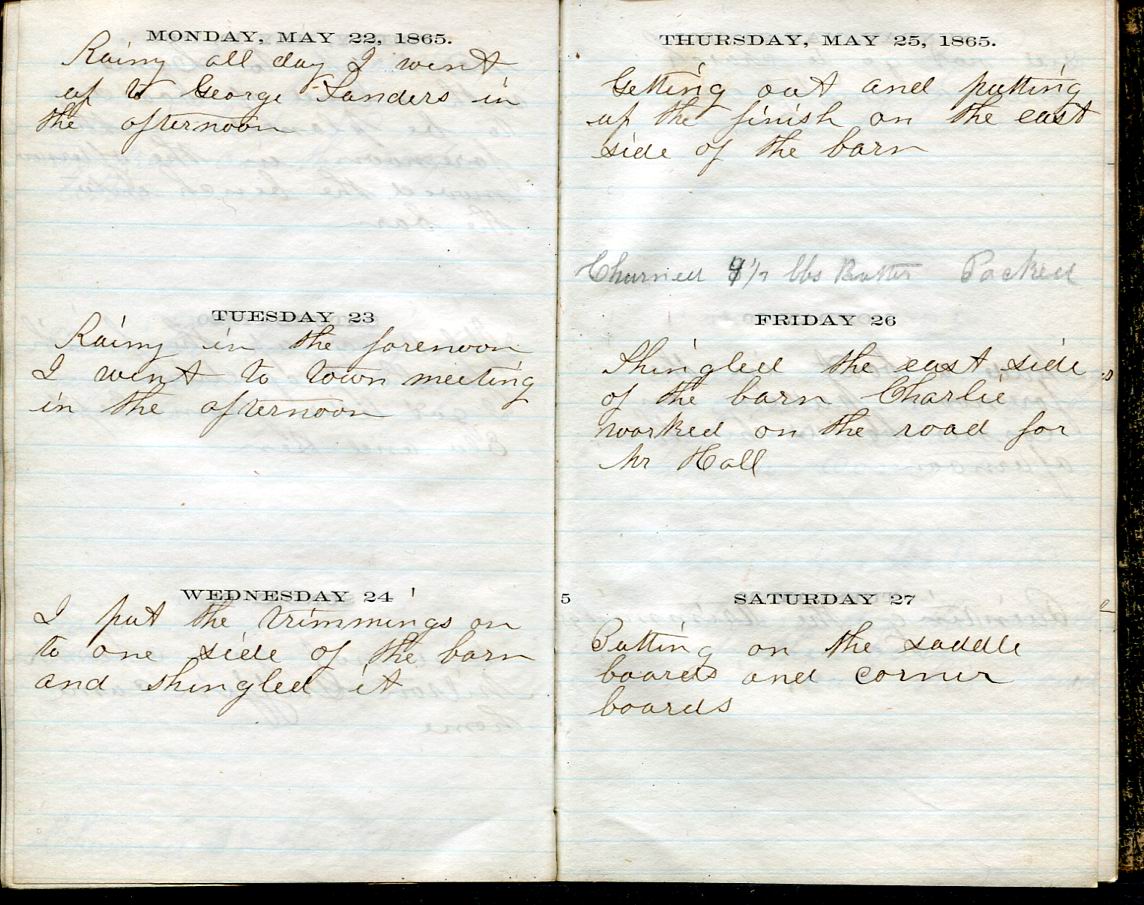 MONDAY, MAY 22, 1865.
Rainy all day I went
up to George Sanders in
the afternoon
TUESDAY 23
Rainy in the forenoon
I went to town meeting
in the afternoon
WEDNESDAY 24
I put the trimmings on
to one side of the barn
and shingled it
THURSDAY, MAY 25, 1865.
Getting out and putting
up the finish on the east
side of the barn
Churned lbs Butter Packed
FRIDAY 26
Shingled the east side
of the barn Charlie
worked on the road for
Mr Hall
5
SATURDAY 27
Putting on the saddle
boards and corner
boards